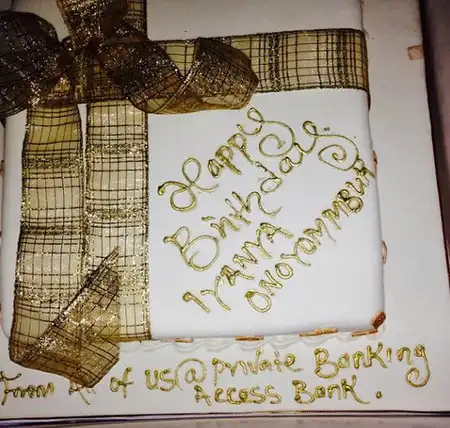 Happy
Birthday
IYANYA
ONOYOMMBUK
From All of us @ private Banking
Access Bank.